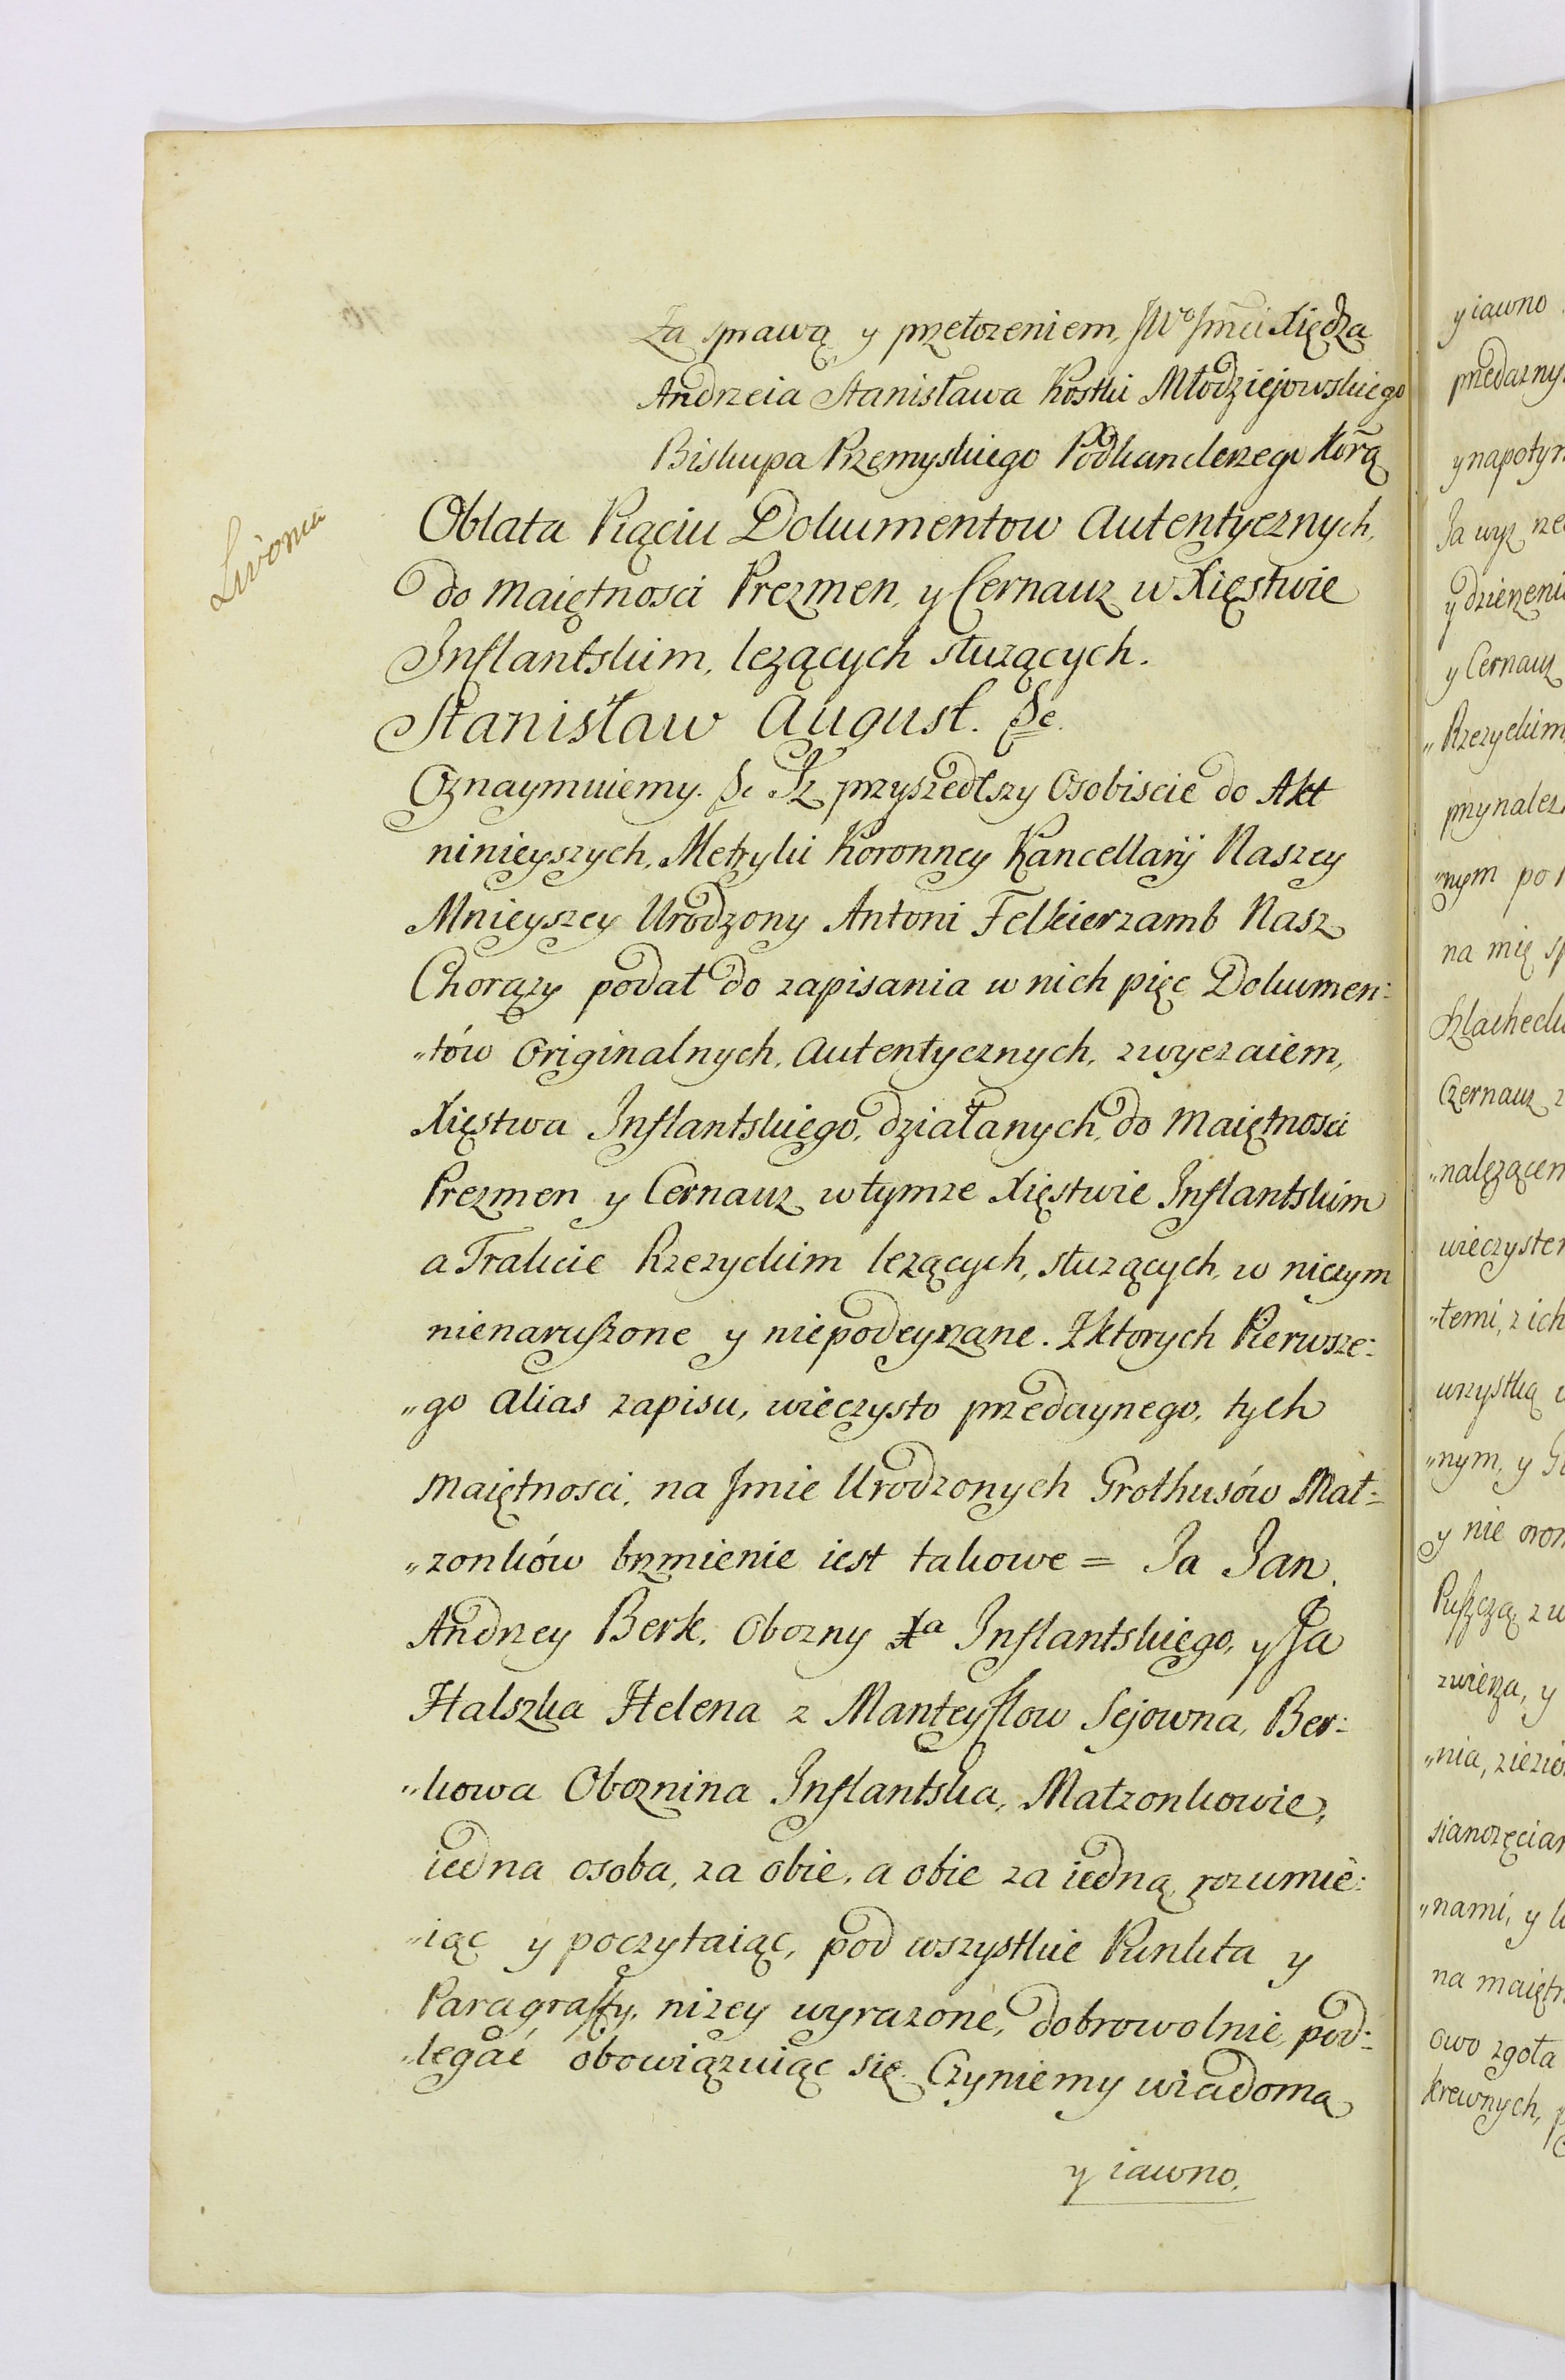 Za sprawą y przełozeniem, JWo Jmci Xiędza
Andrzeia Stanisława Kostki Młodziejowskiego
Biskupa Przemyskiego Podkanclerzego Korą
Livonia
Oblata Piąciu Dokumentow Autentycznych,
do Maiętnosci Prezmen, y Cernauz w Xięstwie
Inflantskim, lezących słuzących.
Stanisław August. &c.
Oznaymuiemy. &c Iz przyszedłszy Osobiscie do Akt
ninieyszych, Metryki Koronney Kancellaryi Naszey
Mnieyszey Urodzony Antoni Felkierzamb Nasz
Chorązy podał do zapisania w nich pięc Dokumen:
„tów Originalnych, Autentycznych, zwyczaiem,
Xięstwa Inflantskiego, działanych, do Maiętnosci
Prezmen y Cernauz w tymze Xięstwie Inflantskim
a Trakcie Rzezyckim lezących, słuzących, w niczym
nienaruszone y niepodeyrzane. Z ktorych Pierwsze:
„go alias zapisu, wieczysto przedaynego, tych
Maiętnosci, na Jmie Urodzonych Grothusów Mał=
„zonków brzmienie iest takowe = Ja Jan
Andrzey Berk, Obozny Xa Inflantskiego, y Ja
Halszka Helena z Manteyflow Sejowna, Ber:
„kowa Oboznina Inflantska, Małzonkowie,
iedna osoba, za obie, a obie za iedną, rozumie:
„iąc y poczytaiąc, pod wszystkie Punkta y
Paragraffy, nizey wyrazone, dobrowolnie, pod:
„legać obowiązuiąc się. Czyniemy wiadomą
y iawno.
y iawno
przedazny
y napotym
Ja wyz
y dzierzeni
y Cernauz
„Rzezyckim
przynalez
„nym po
na mię
Szlacheck
Czernauz
„nalezącem
wieczyster
„temi, z ich
wszystką
„nym, y
y nie
Puszczą,
zwierza, y
„nia,
sianozęciam
„nami, y
na maiętn
owo zgoła
krewnych,